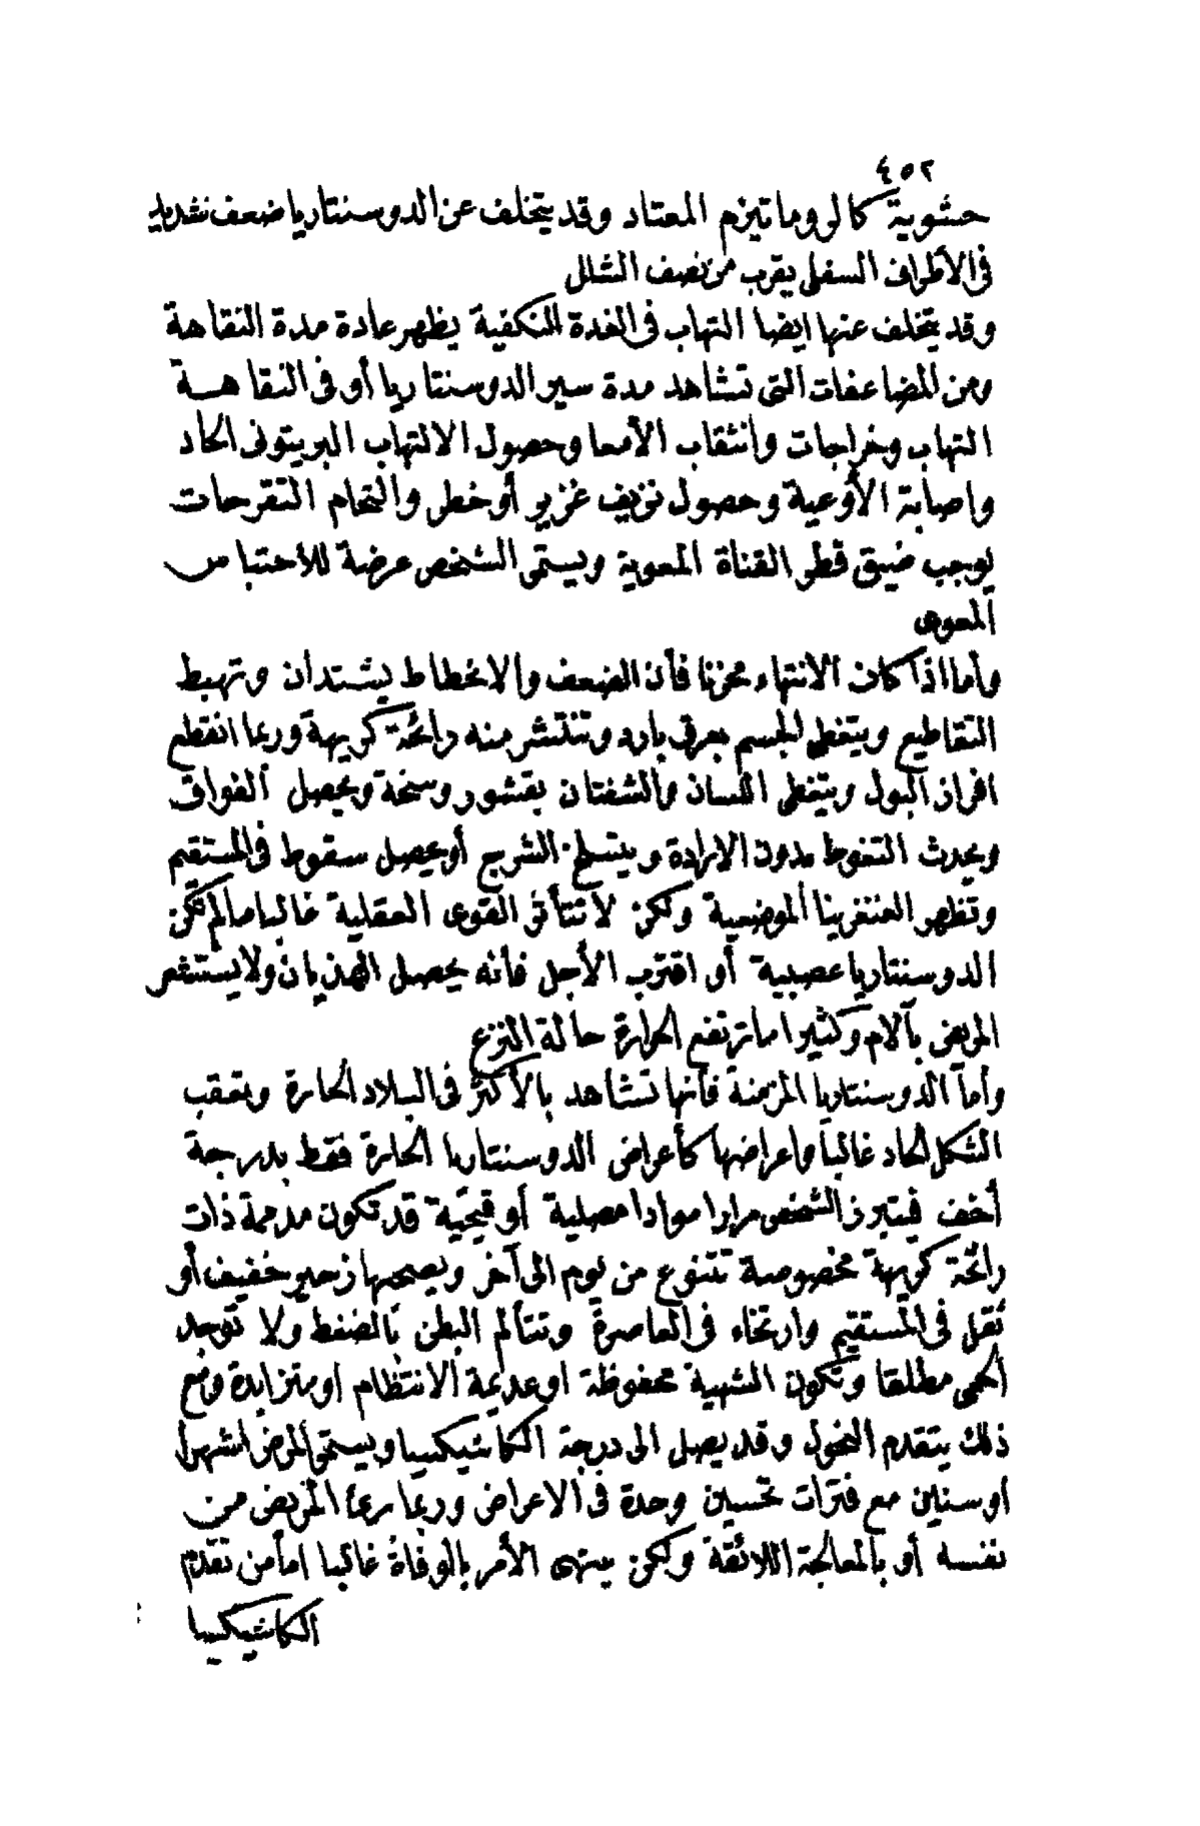 ٤٥٢
حشوية كالروماتيزم المعتاد وقد يتخلف عن الدوسنتاريا ضعف شديد
فى الأطراف السفلى يقرب من نصف الشلل
وقد يتخلف عنها ايضا التهاب فى الغدة النكفية يظهر عادة مدة النقاهة
ومن المضاعفات التى تشاهد مدة سير الدوسنتاريا أو فى النقاهة
التهاب وخراجات وانثقاب الأمعا وحصول الالتهاب البريتونى الحاد
واصابة الأوعية وحصول نزيف غزير أو خطر والتحام التقرحات
يوجب ضيق قطر القناة المعوية ويستمى الشخص عرضة للاحتباس
المعوى
وأما اذا كان الانتهاء محزنا فأن الضعف والانحطاط يشتدان وتهبط
التقاطيع ويتغطى الجسم بعرق بارد وتنتشر منه رائحة كريهة وربما انقطع
افراز البول ويتغطى اللسان والشفتان بقشور وسخة ويحصل الفواق
ويحدث التغوط بدون الارادة ويتسلخ الشرج أو يحصل سقوط فى المستقيم
وتظهر الغنغرينا الموضعية ولكن لا تتأثر القوى العقلية غالبا مالم تكن
الدوسنتاريا عصبية أو اقترب الأجل فأنه يحصل الهذيان ولا يستشعر
المريض بآلام وكثيرا ما ترتفع الحرارة حالة النزع
وأما الدوسنتاريا المزمنة فأنها تشاهد بالأكثر فى البلاد الحارة وتعقب
الشكل الحاد غالبا واعراضها كأعراض الدوسنتاريا الحارة فقط بدرجة
أخف فيتبرز الشخص مرارا موادا مصلية أو قيحية قد تكون مدممة ذات
رائحة كريهة مخصوصة تتنوع من يوم الى آخر ويصحبها زحير خفيف أو
ثقل فى المستقيم وارتخاء فى العاصرة وتتألم البطن بالضغط ولا توجد
الحمى مطلقا وتكون الشهية محفوظة او عديمة الانتظام او متزايدة ومع
ذلك يتقدم النحول وقد يصل الى درجة الكاشيكسيا ويستمى المرض اشهرا
أو سنين مع فترات تحسين وحدة فى الاعراض وربما برئ المريض من
نفسه أو بالمعالجة اللائقة ولكن ينتهى الأمر بالوفاة غالبا اما من تقدم
الكاشيكسيا